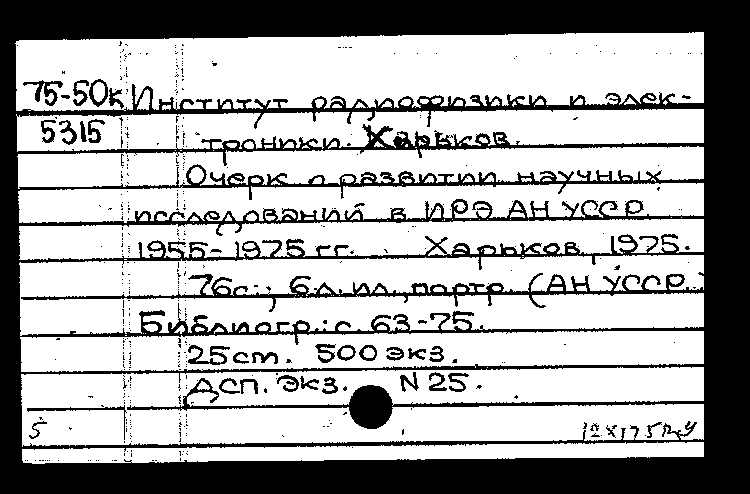 75-50к Институт радиофизики и элек-
5315 троники. Харьков.
Очерк о развитии научных
исследований в ИРЭ АН УССР
1955-1975 гг. Харьков, 1975.
76с.; 6 л. ил., портр. (АН УССР.
Библиогр.: с. 63-75.
25 см. 500 экз.
ДСП. Экз. N 25.
5